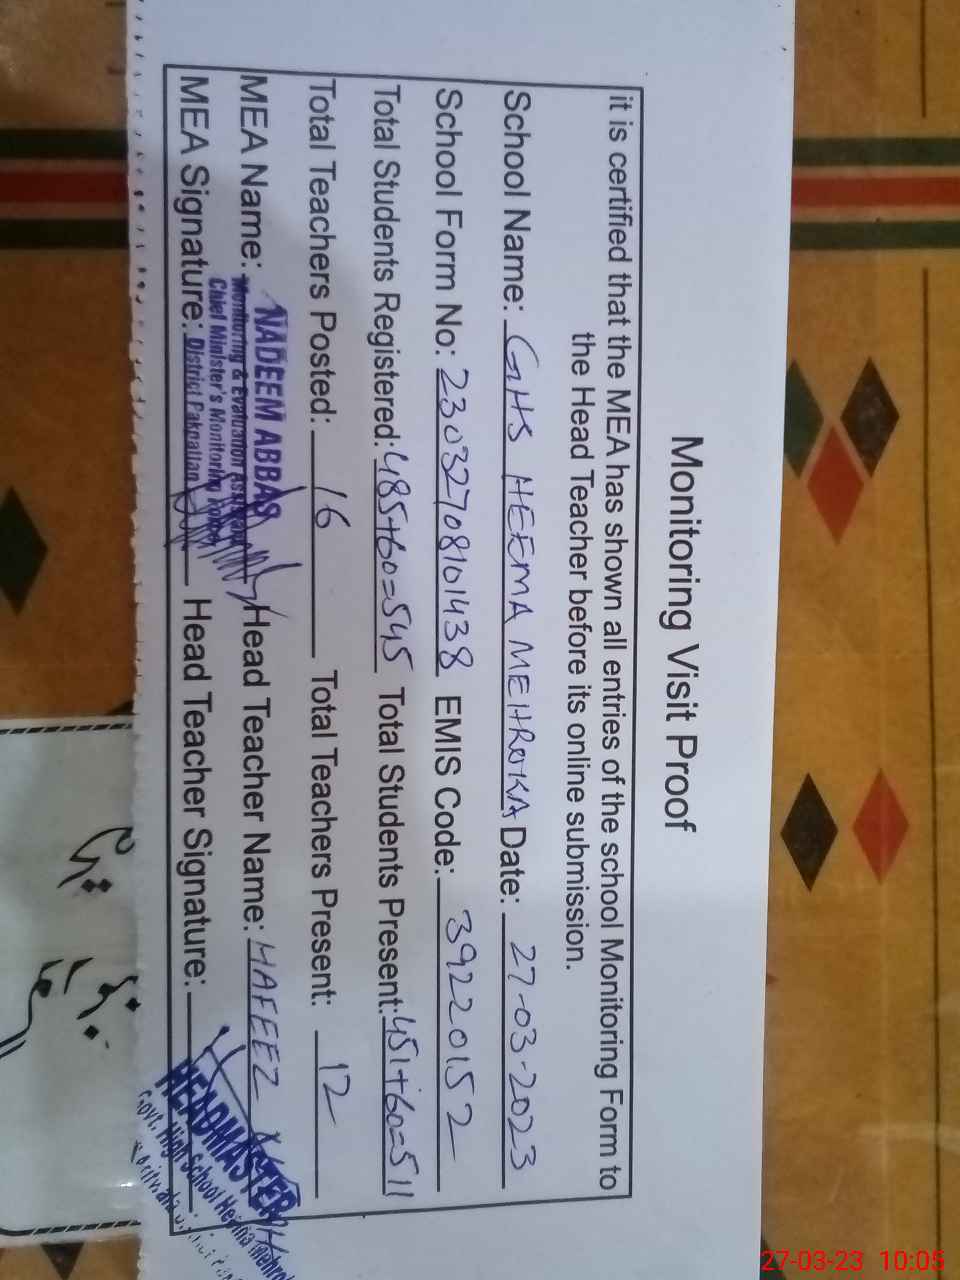 Monitoring Visit Proof
it is certified that the MEA has shown all entries of the school Monitoring Form to
the Head Teacher before its online submission.
School Name: GHS HEEMA MEHROKA Date: 27-03-2023
School Form No: 23032708101438 EMIS Code: 39220152
Total Students Registered: 485+60=545 Total Students Present: 451+60=511
Total Teachers Posted: 16 Total Teachers Present: 12
MEA Name: NADEEM ABBAS Head Teacher Name: HAFEEZ
Monitoring & Evaluation Assistant
Chief Minister's Monitoring Force
MEA Signature: District Pakpattan Head Teacher Signature:
HEADMASTER
Govt. High School Heema Mehro
27-03-23 10:05